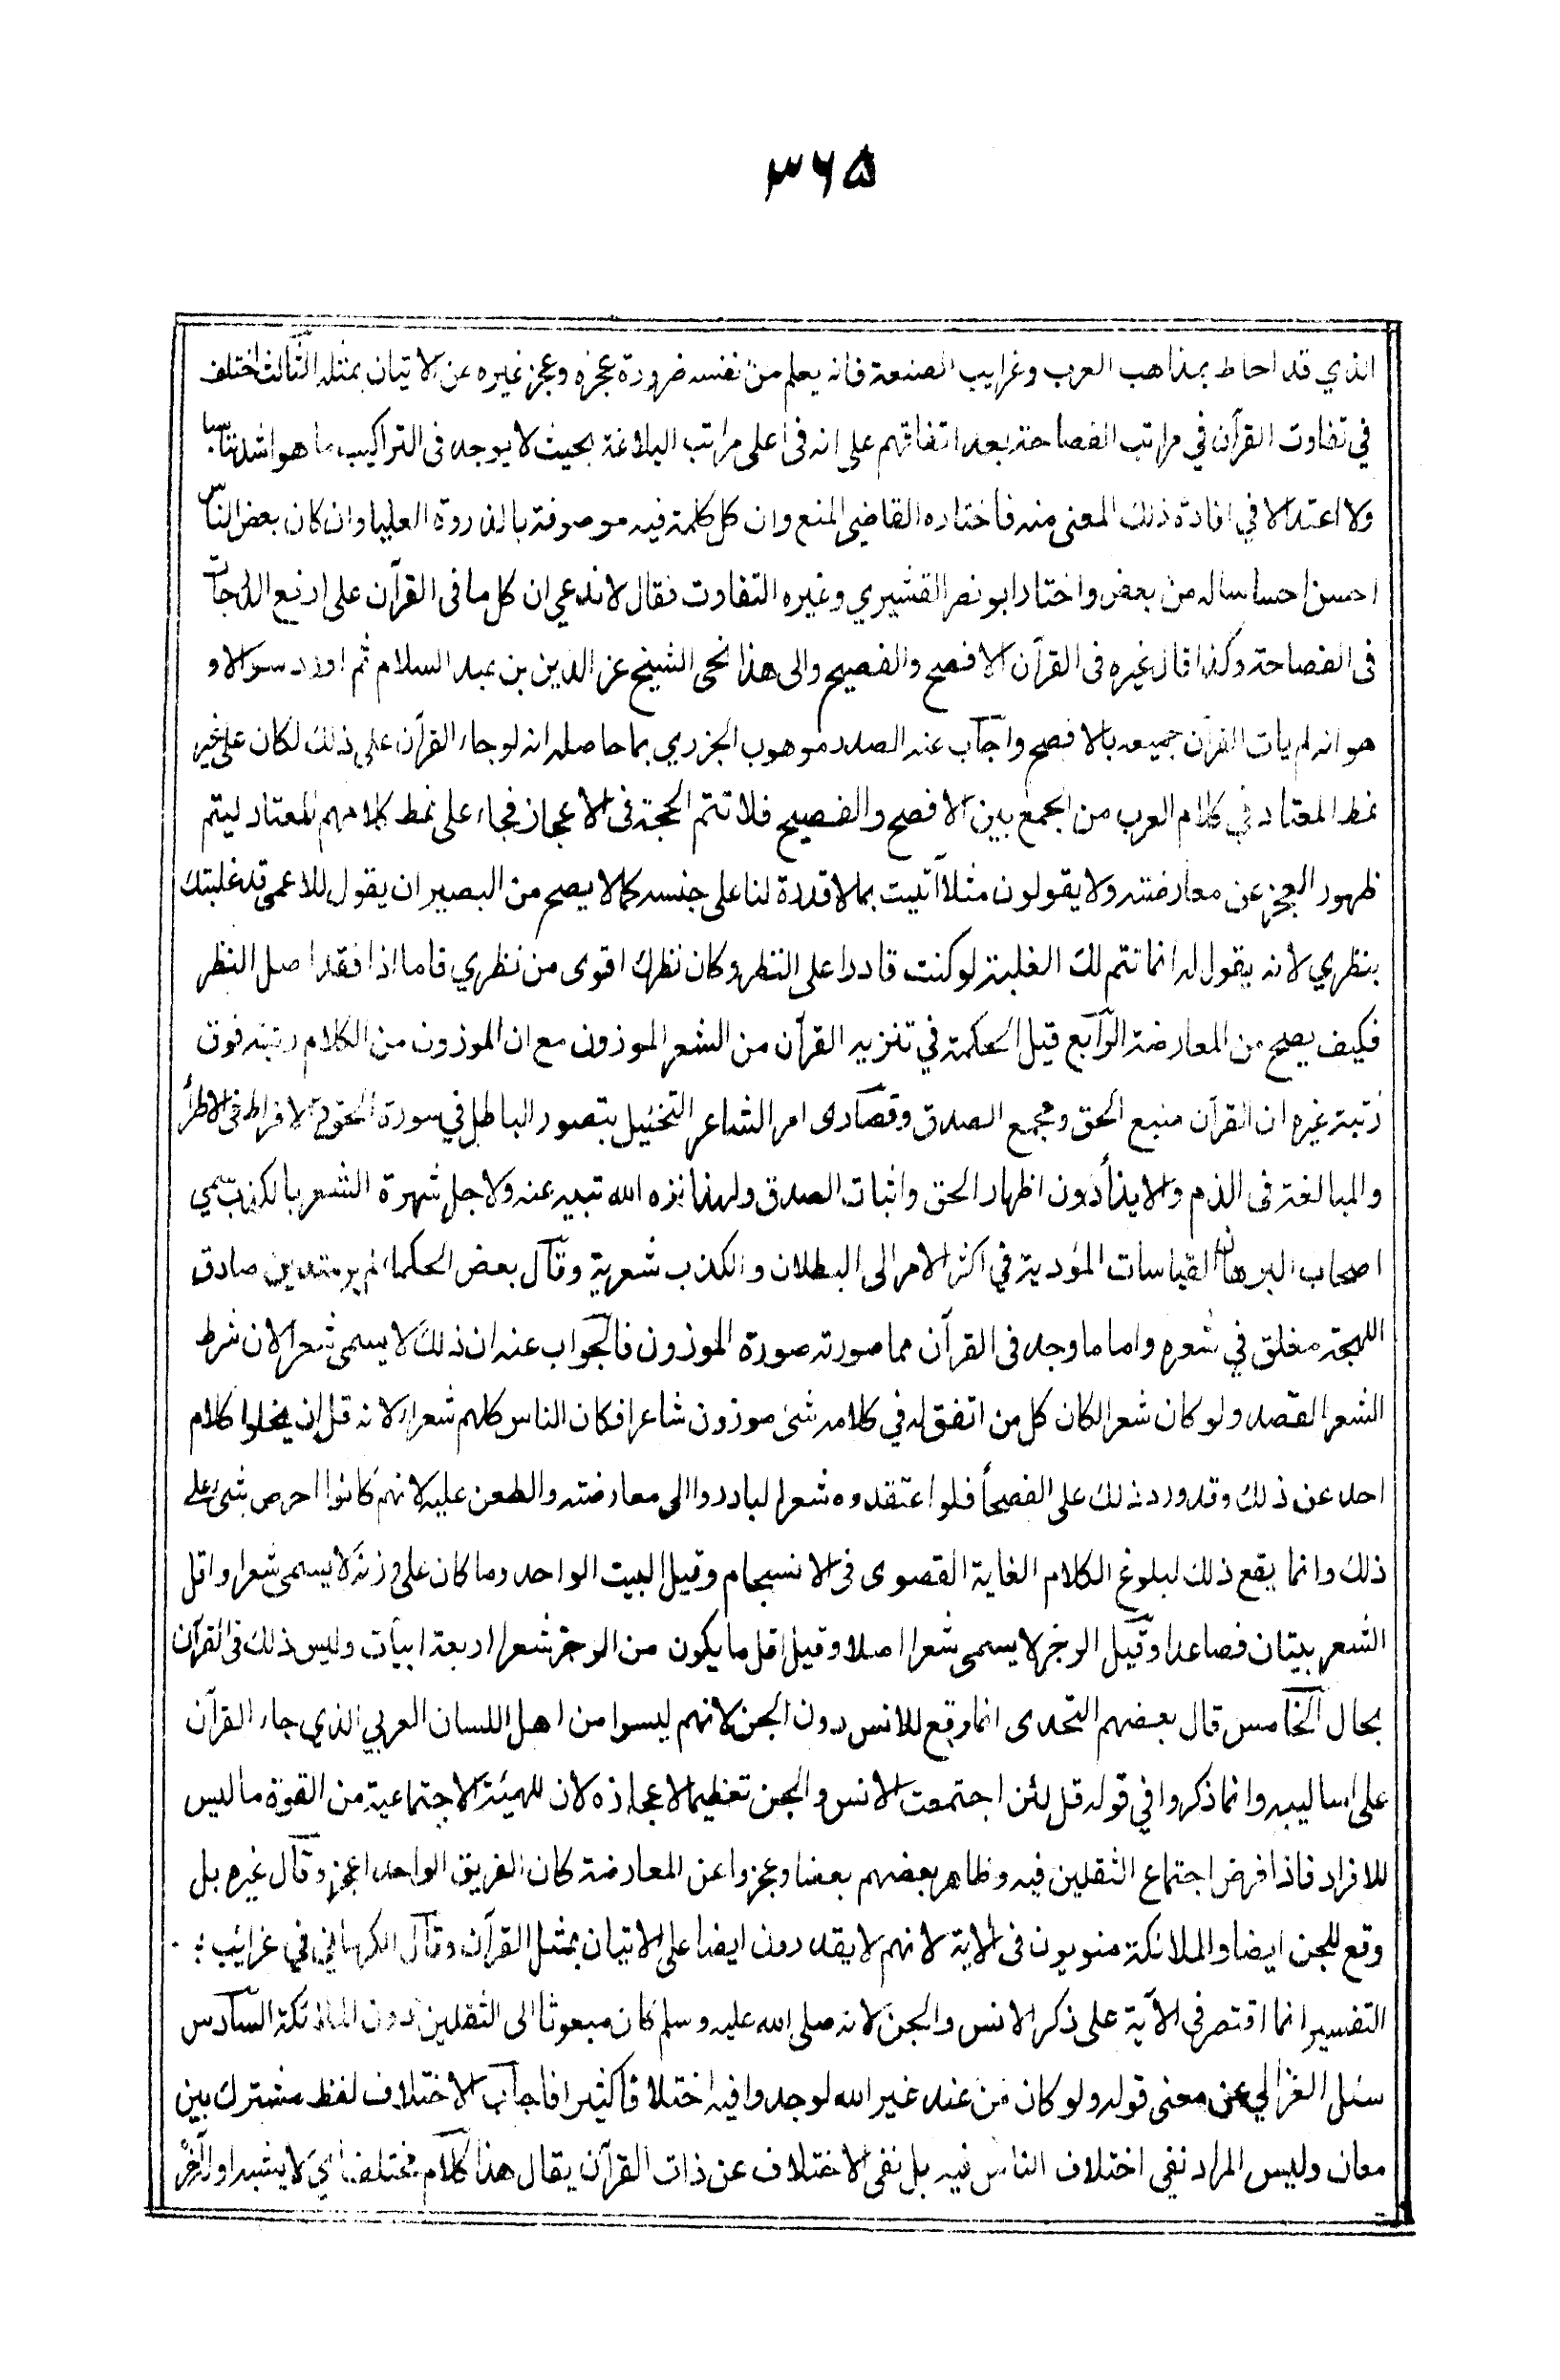 ٣٦٥
الذي قد احاط بمذاهب العرب وغرايب الصنعة فانه يعلم من نفسه ضرورة عجزه وعجز غيره عن الاتيان بمثله الثالث اختلف
في تفاوت القرآن في مراتب الفصاحة بعد اتفاقهم على انه فى اعلى مراتب البلاغة بحيث لا يوجد فى التراكيب ما هو اشد تناسبا
ولا اعتدالا في افادة ذلك المعنى منه فاختاره القاضي المنع وان كل كلمة فيه موصوفة بالذروة العليا وان كان بعض الناس
احسن احساسا له من بعض واختار ابو نصر القشيري وغيره التفاوت فقال لا ندعي ان كل ما فى القرآن على ارفع الدرجات
فى الفصاحة وكذا قال غيره فى القرآن الافصح والفصيح والى هذا نحى الشيخ عز الدين بن عبد السلام ثم اورد سوالا و
هو انه لم يات القرآن جميعه بالافصح واجاب عنه الصدر موهوب الجزري بما حاصله انه لو جاء القرآن على ذلك لكان على غير
نمط المعتاد في كلام العرب من الجمع بين الافصح والفصيح فلا تتم الحجة فى الاعجاز فجاء على نمط كلامهم المعتاد ليتم
ظهور العجز عن معارضته ولا يقولون مثلا اتيت بما لا قدرة لنا على جنسه كما لا يصح من البصير ان يقول للاعمى قد غلبتك
بنظري لانه يقول له انما تتم لك الغلبة لو كنت قادرا على النظر وكان نظرك اقوى من نظري فاما اذا فقد اصل النظر
فكيف يصح من المعارضة الرابع قيل الحكمة في تنزيه القرآن من الشعر الموزون مع ان الموزون من الكلام رتبته فوق
رتبة غيره ان القرآن منبع الحق ومجمع الصدق وقصارى امر الشاعر التخئيل بتصور الباطل في سورة الحق والافراط فى الاطرأ
والمبالغة فى الذم والايذأ دون اظهار الحق واثبات الصدق ولهذا نزه الله نبيه عنه ولاجل شهرة الشعر بالكذب سمي
اصحاب البرهان القياسات المؤدية في اكثر الامر الى البطلان والكذب شعرية وقال بعض الحكماء لم ير متدين صادق
اللهجة مغلق في شعره واما ما وجد فى القرآن مما صورته صورة الموزون فالجواب عنه ان ذلك لا يسمى شعرا لان شرط
الشعر القصد ولو كان شعرا لكان كل من اتفق له في كلامه شئ موزون شاعرا فكان الناس كلهم شعراء لانه قل ان يخلوا كلام
احد عن ذلك وقد ورد ذلك على الفصحأ فلو اعتقدوه شعرا لبادروا الى معارضته والطعن عليه لانهم كانوا احرص شئ على
ذلك وانما يقع ذلك لبلوغ الكلام الغاية القصوى فى الانسجام وقيل البيت الواحد وما كان على وزنه لا يسمى شعرا واقل
الشعر بيتان فصاعدا وقيل الرجز لا يسمى شعرا اصلا وقيل اقل ما يكون من الرجز شعرا اربعة ابيات وليس ذلك فى القرآن
بحال الخامس قال بعضهم التحدى انما وقع للانس دون الجن لانهم ليسوا من اهل اللسان العربي الذي جاء القرآن
على اساليبه وانما ذكروا في قوله قل لئن اجتمعت الانس والجن تعظيما لاعجازه لان للهيئة الاجتماعية من القوة ما ليس
للافراد فاذا فرض اجتماع الثقلين فيه وظاهر بعضهم بعضا وعجزوا عن المعارضة كان الفريق الواحد اعجز وقال غيره بل
وقع للجن ايضا والملائكة منويون فى الاية لانهم لا يقدرون ايضا على الاتيان بمثل القرآن وقال الكرماني في غرائب
التفسير انما اقتصر في الآية على ذكر الانس والجن لانه صلى الله عليه وسلم كان مبعوثا الى الثقلين دون الملائكة السادس
سئل الغزالي عن معنى قوله ولو كان من عند غير الله لوجدوا فيه اختلافا كثيرا فاجاب الاختلاف لفظ مشترك بين
معان وليس المراد نفي اختلاف الناس فيه بل نفى الاختلاف عن ذات القرآن يقال هذا كلام مختلف اي لا يشبه اوله آخره